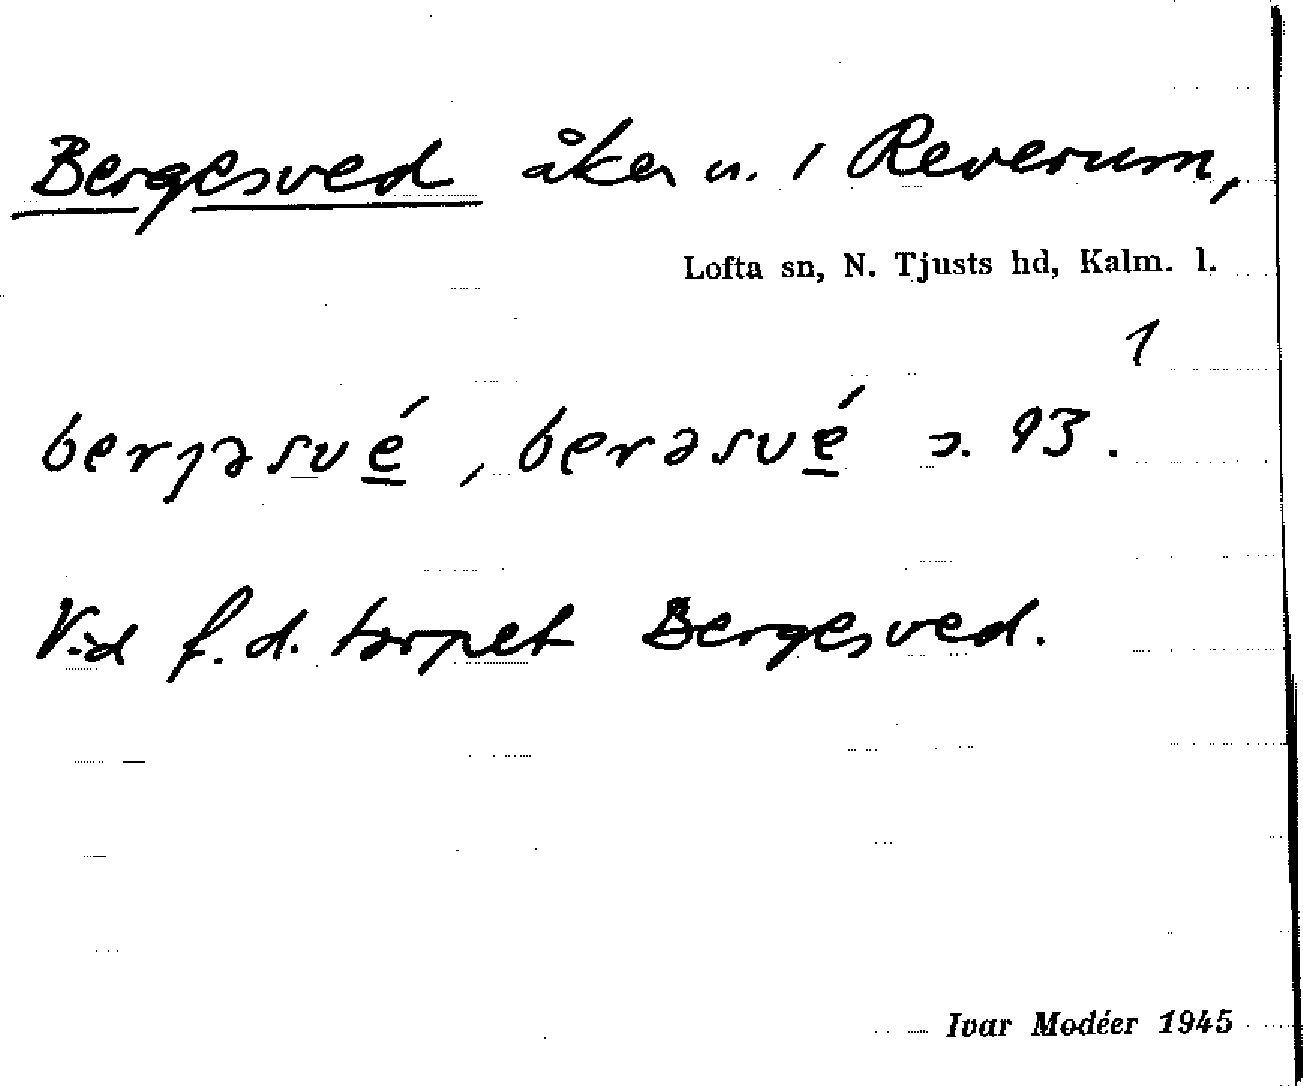 Bergesved åker n. 1 Reverum,
Lofta sn, N. Tjusts hd, Kalm. l.
1
berjəsvé, berəsvé s. 93.
Vid f.d. torpet Bergesved.
Ivar Modéer 1945